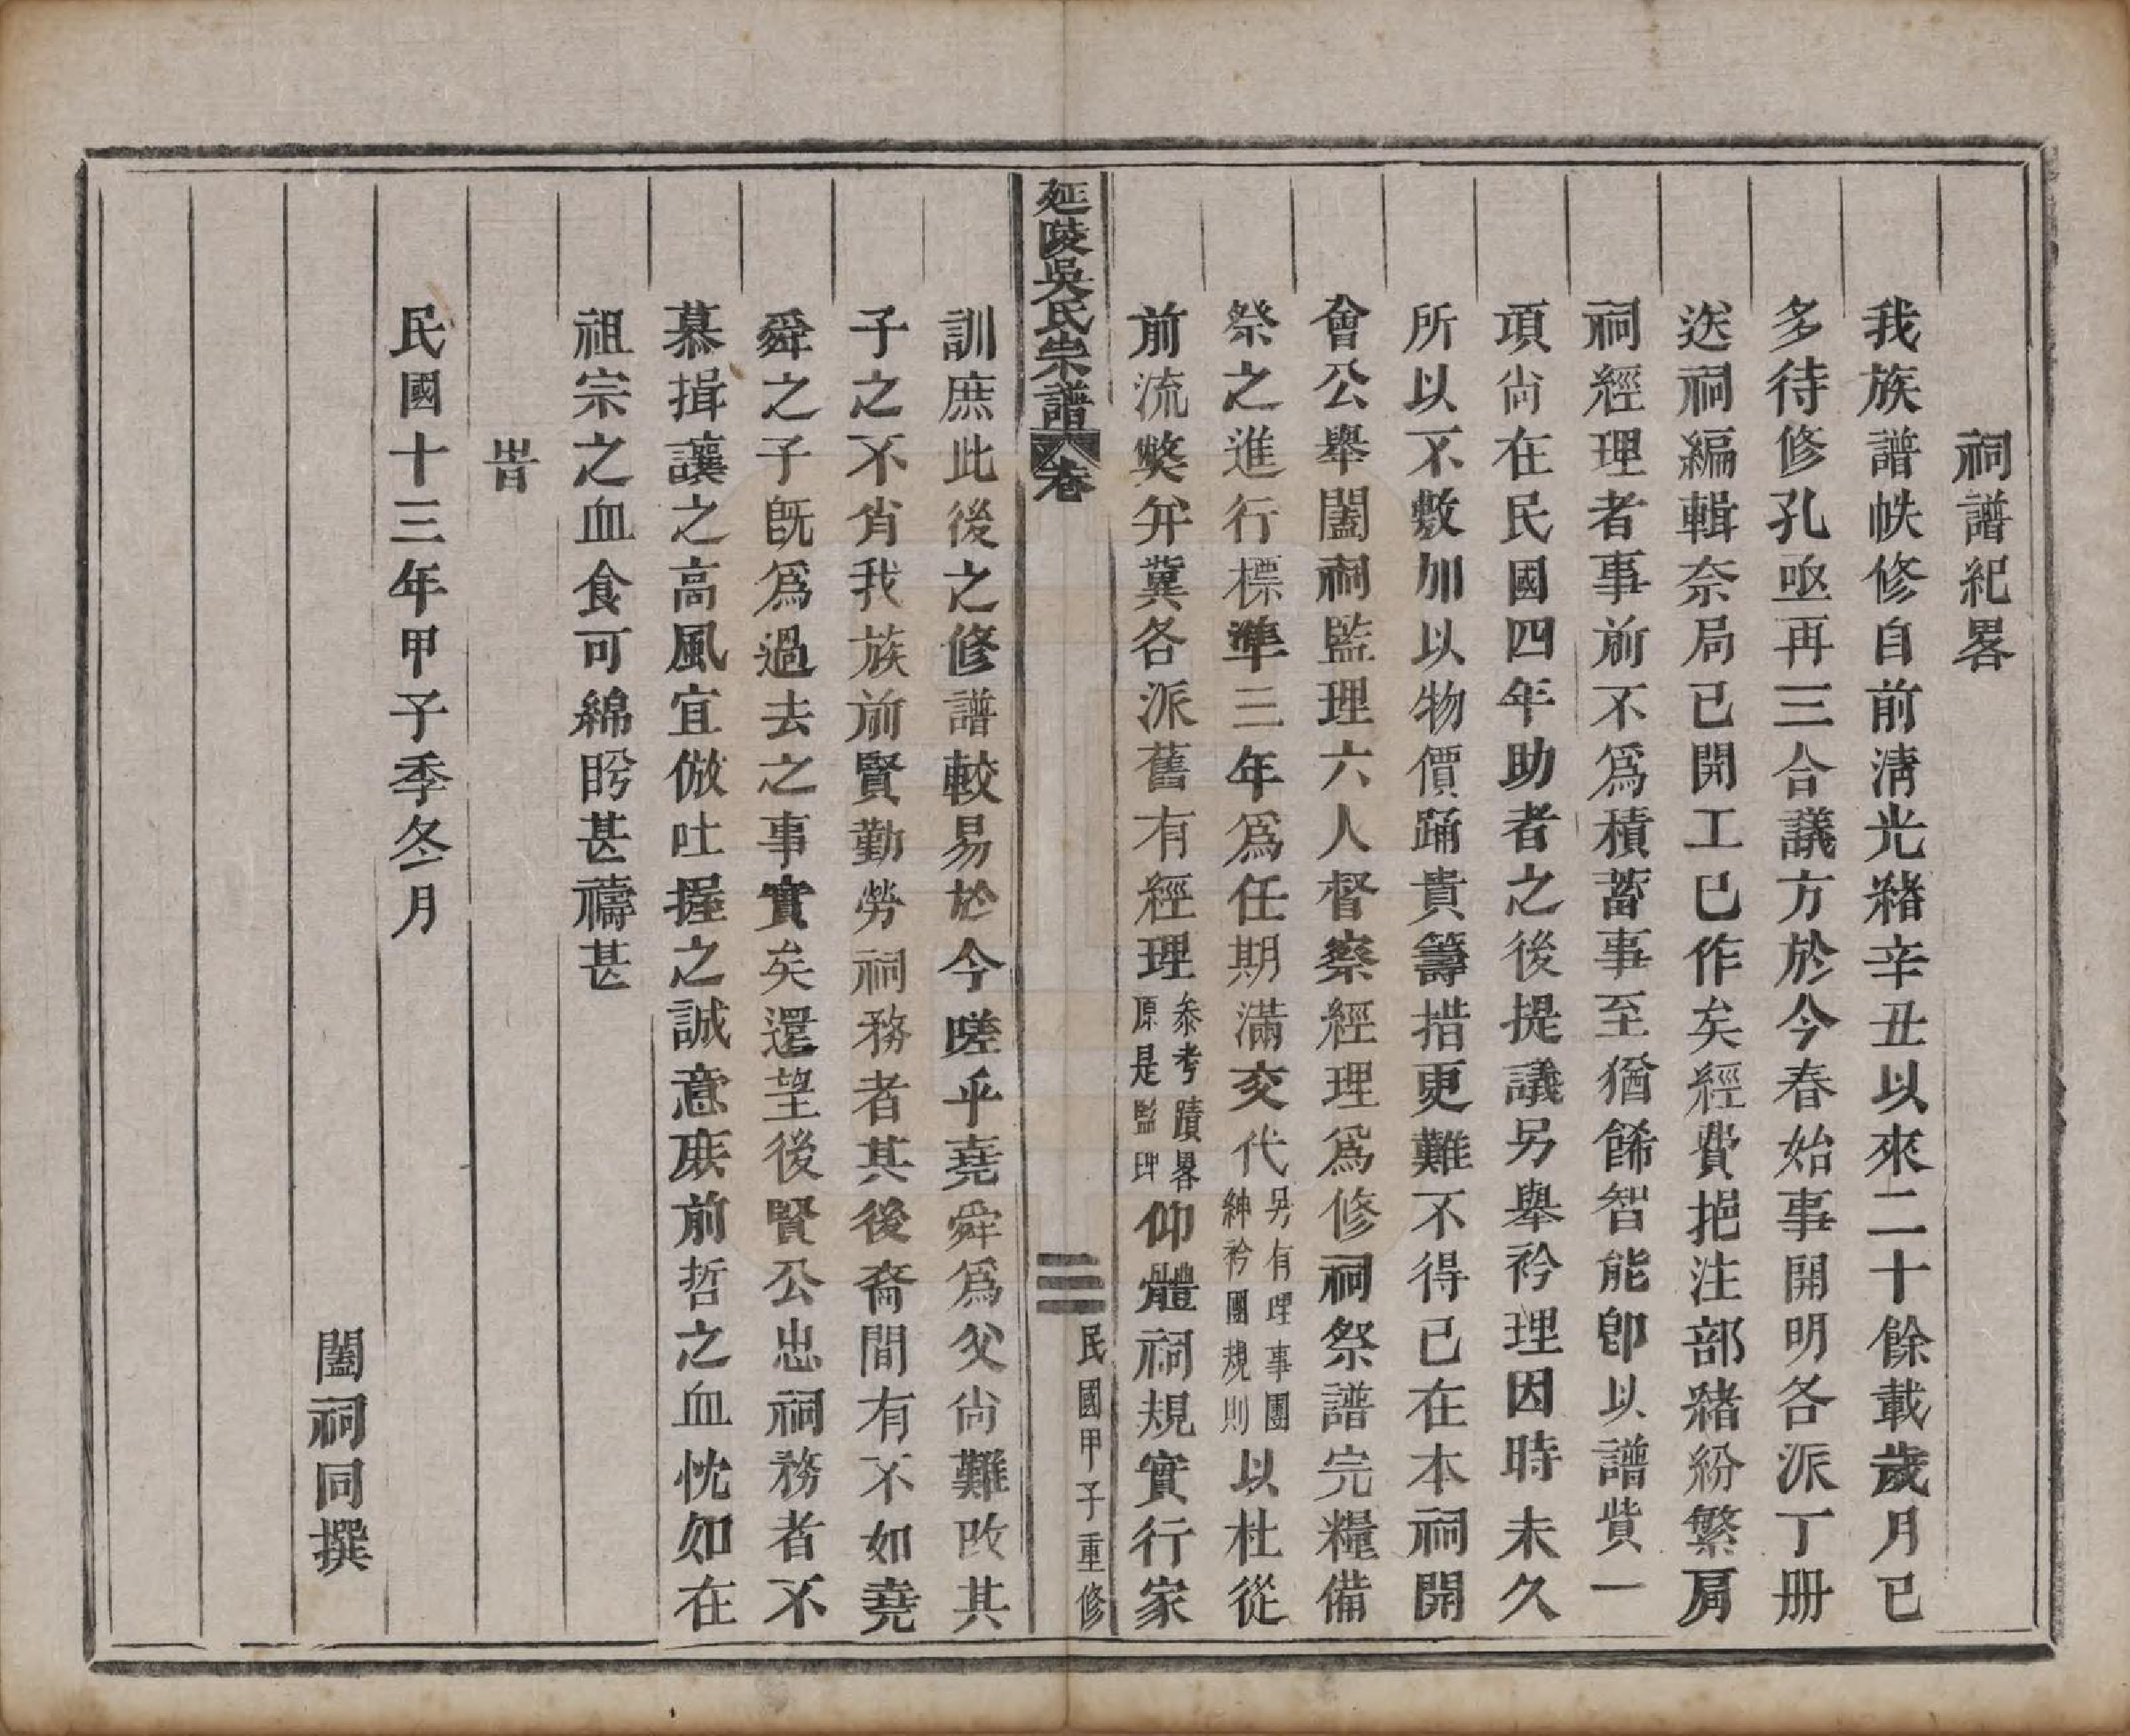 祠譜紀畧
我族譜帙修自前淸光緖辛丑以來二十餘載歲月已
多待修孔亟再三合議方於今春始事開明各派丁册
送祠編輯奈局已開工已作矣經費挹注部緖紛繁肩
祠經理者事前不爲積蓄事至猶餙智能卽以譜貲一
項尙在民國四年助者之後提議另舉衿理因時未久
所以不敷加以物價踊貴籌措更難不得已在本祠開
會公舉闔祠監理六人督察經理爲修祠祭譜完糧備
祭之進行標準三年爲任期滿交代另有理事團紳衿團規則以杜從
前流獘弁冀各派舊有經理叅考蹟畧原是監理仰體祠規實行家
延陵吳氏崇譜 卷 三 民國甲子重修
訓庶此後之修譜較易於今嗟乎堯舜爲父尙難改其
子之不肖我族前賢勤勞祠務者其後裔間有不如堯
舜之子旣爲過去之事實矣還望後賢公忠祠務者不
慕揖讓之高風宜倣吐握之誠意庶前哲之血忱如在
祖宗之血食可綿盻甚禱甚
旹
民國十三年甲子季冬月
闔祠同撰